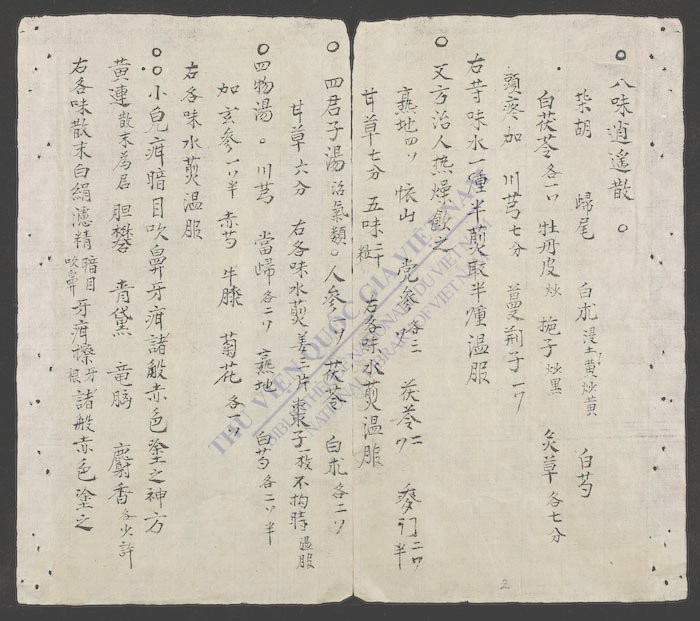 ○ 八味逍遙散 ○
柴胡 歸尾 白朮浸土黃炒黃 白芍
白茯苓各一ツ 牡丹皮炒 梔子炒黑 炙草各七分
頭疼加 川芎七分 蔓荆子一ツ
右苛味水一鍾半煎取半鍾温服
○ 又方治人热燥飲之
熟地四ツ 懐山 党參各三ツ 茯苓二ツ 麥门二ツ半
甘草七分 五味二十粒 右各味水煎温服
○ 四君子湯治氣類○人參一ツ 茯苓 白朮各二ツ
甘草六分 右各味水煎姜三片棗子一枚不拘時温服
○四物湯○川芎 當歸各二ツ 熟地 白芍各二ツ半
加玄參一ツ半 赤芍 牛膝 菊花各一ツ
右各味水煎温服
○○小兒疳暗目吹鼻牙疳諸般赤色塗之神方
黃連散末為君 胆礬 青黛 竜腦 麝香各少許
右各味散末白絹濾精暗目吹鼻牙疳擦牙根諸般赤色塗之
THƯ VIỆN QUỐC GIA VIỆT NAM
BIBLIOTHÈQUE NATIONALE DU VIETNAM
NATIONAL LIBRARY OF VIETNAM
2